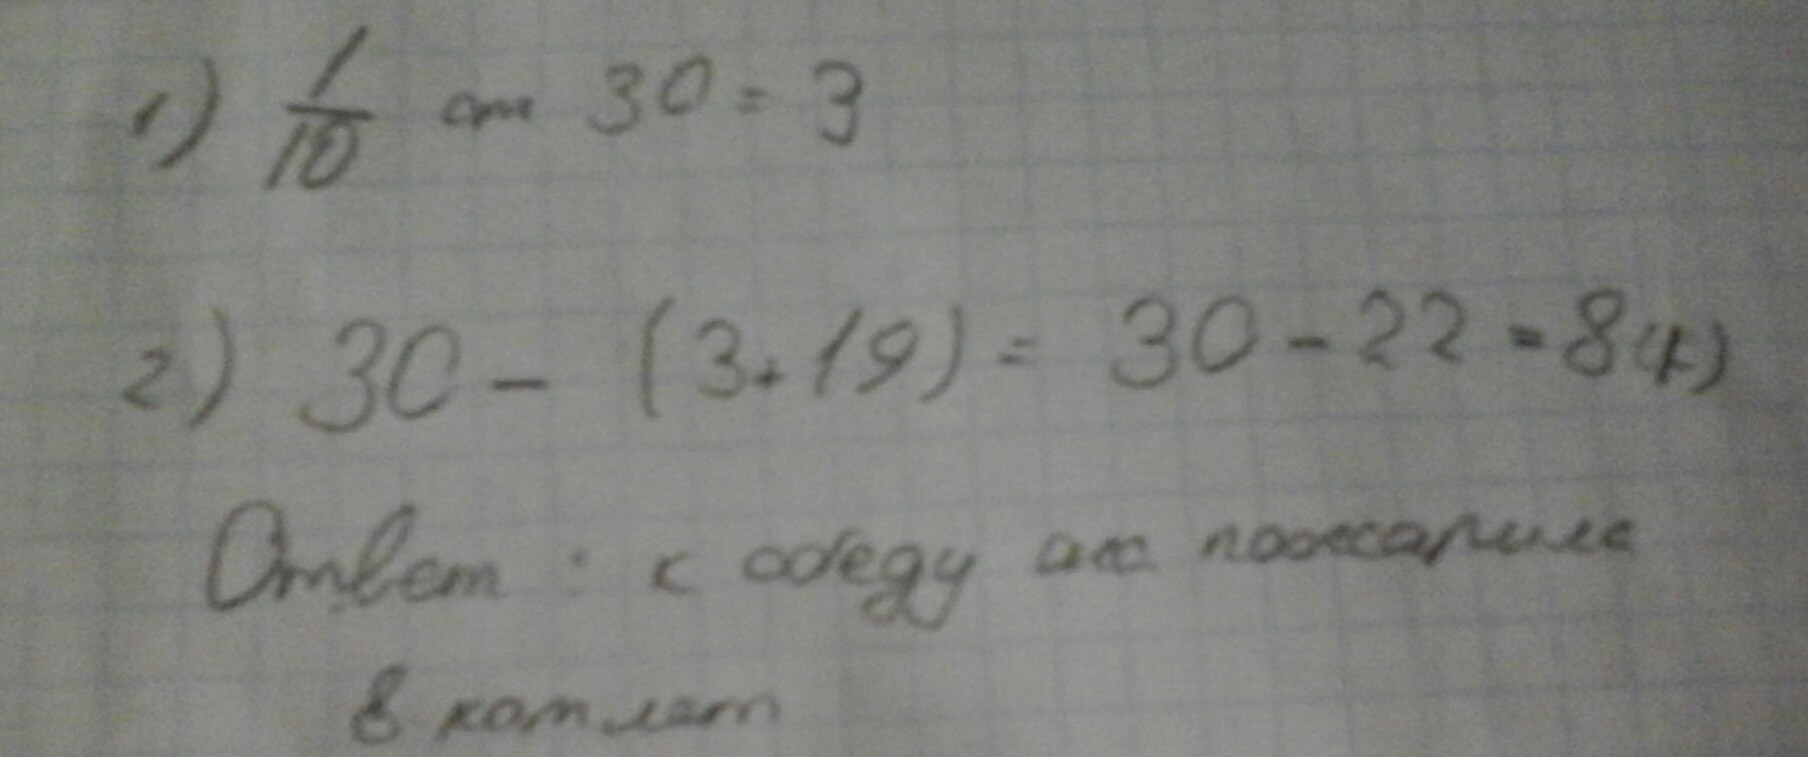 1) 1/10 от 30 = 3
2) 30 - (3+19) = 30 - 22 = 8 (к)
Ответ: к обеду пожарили
8 котлет